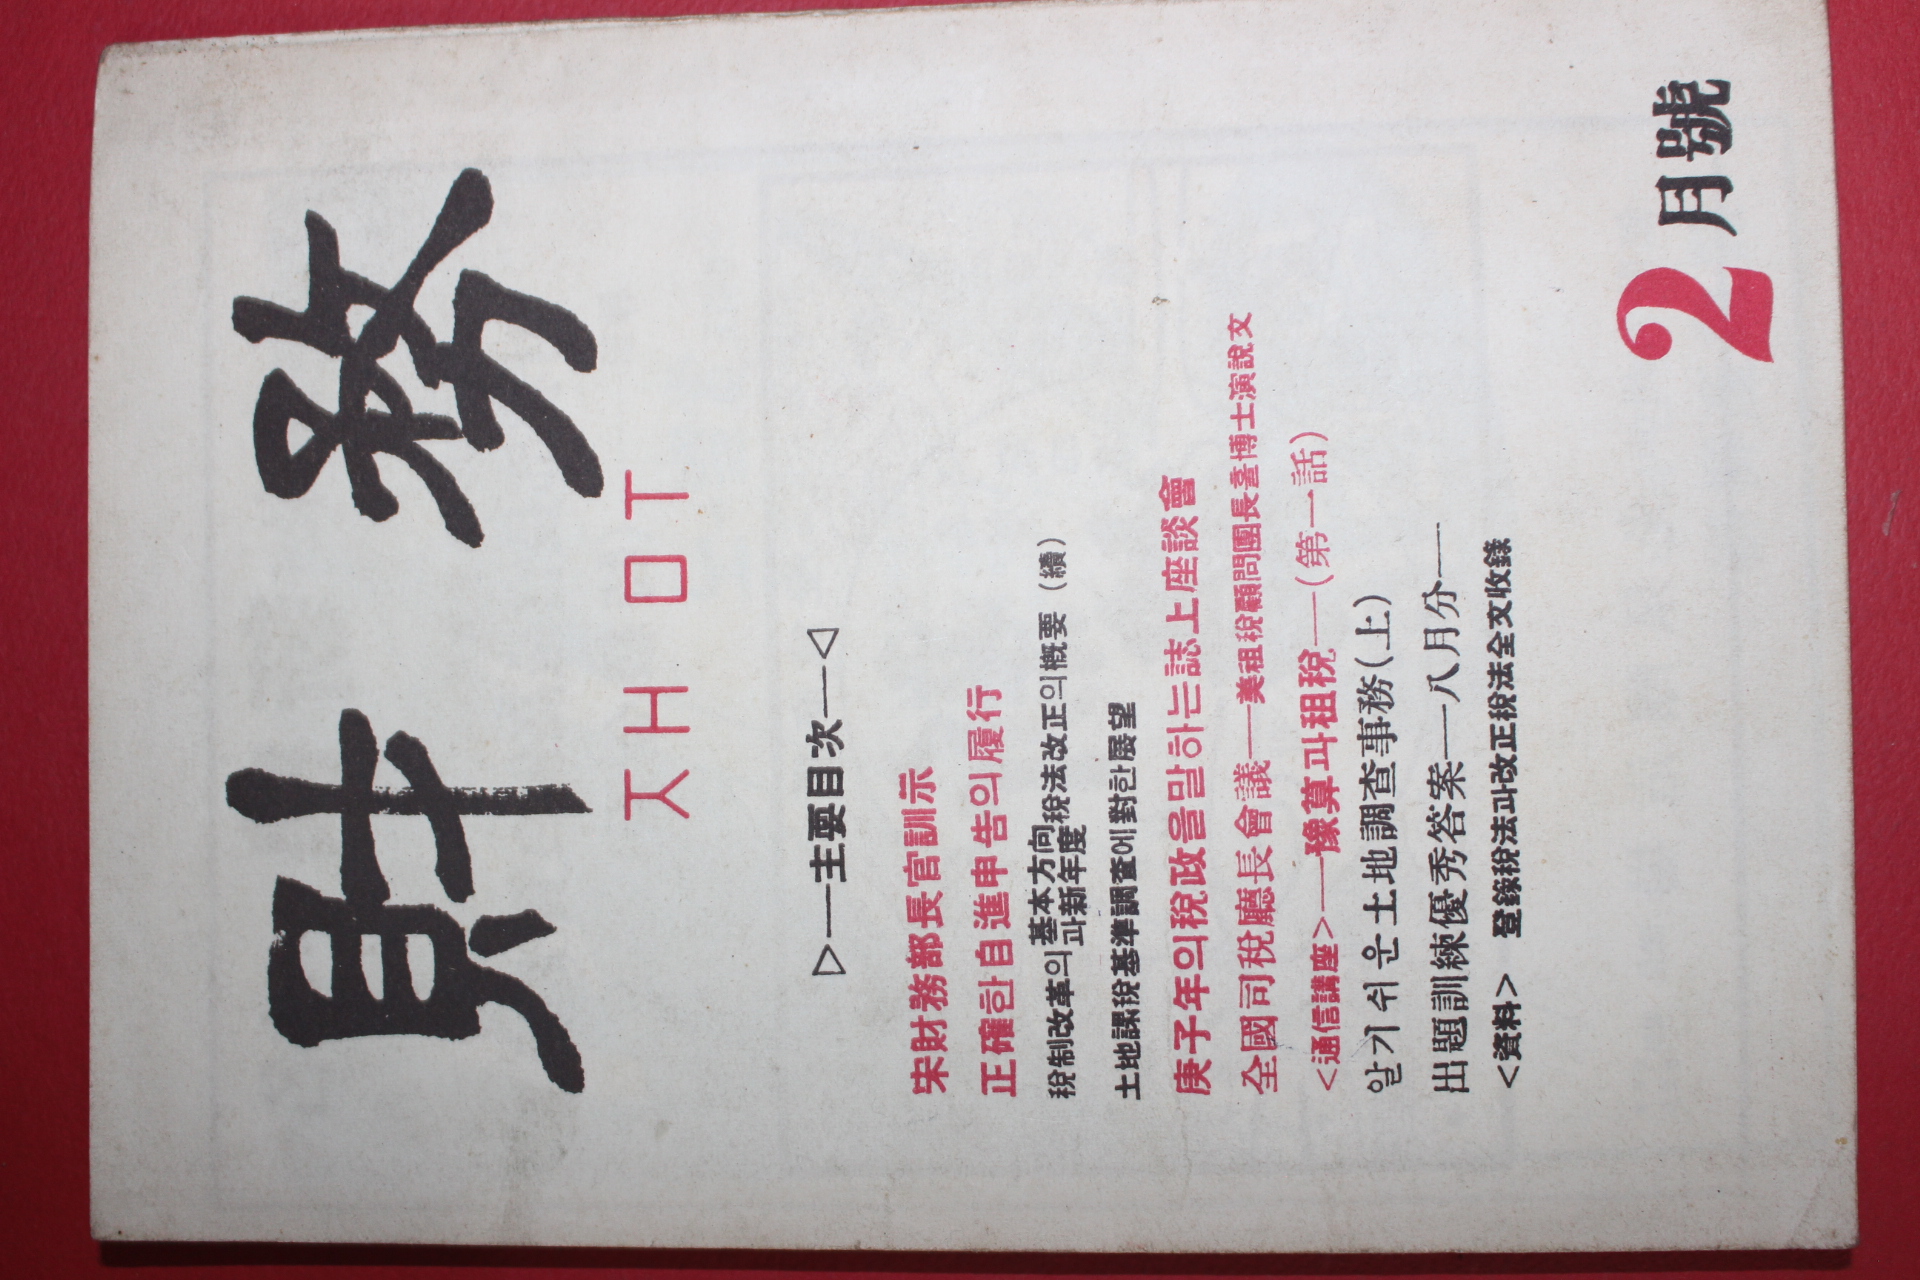 財務
ㅈㅐ ㅁㅜ
▷—主要目次—◁
宋財務部長官訓示
正確한自進申告의履行
税制改革의基本方向과新年度税法改正의槪要(續)
土地課税基準調査에對한展望
庚子年의税政을말하는誌上座談會
全國司税廳長會議——美租税顧問團長홀博士演説文
<通信講座>——豫算과租税——(第一話)
알기쉬운土地調査事務(上)
出題訓練優秀答案——八月分——
<資料> 登錄税法과改正税法全文收錄
2月號